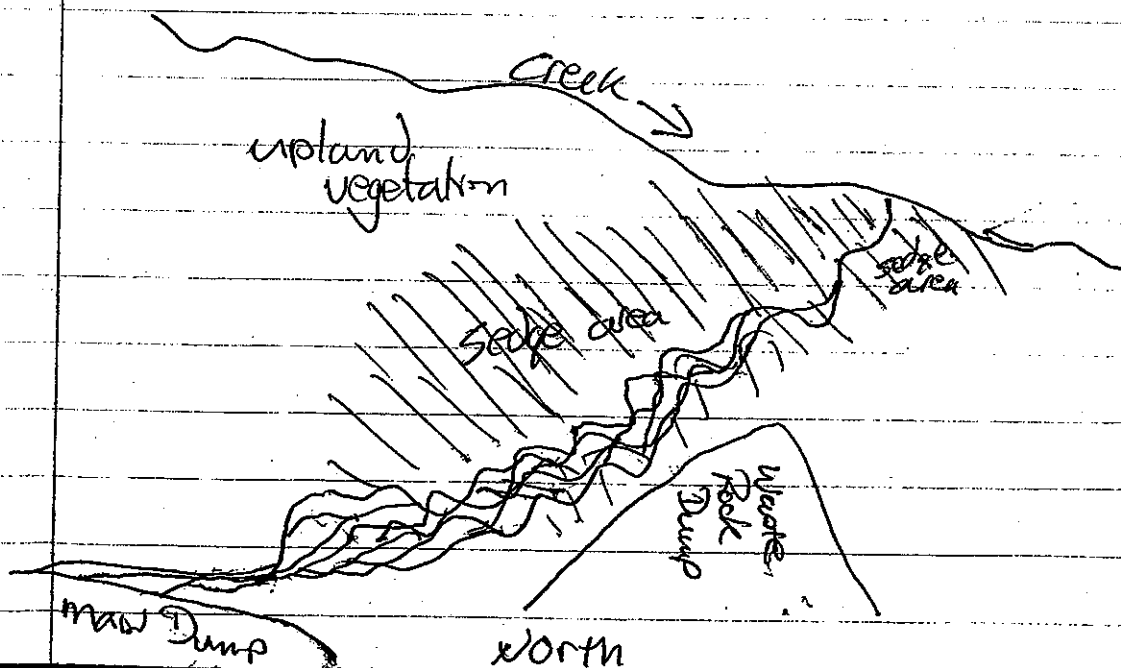 Creek
upland
vegetation
sedge
area
sedge area
Waste
Rock
Dump
Main Dump
North